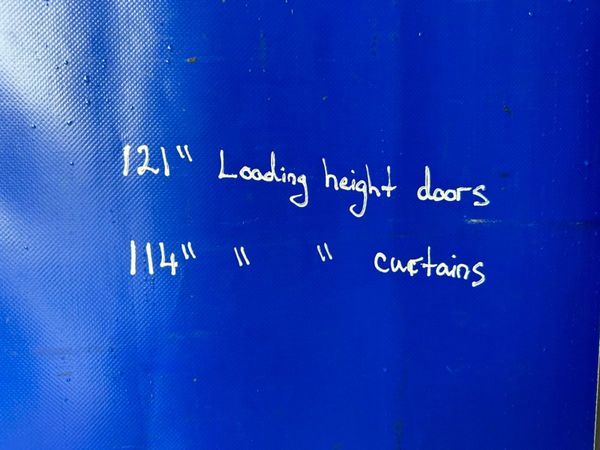 121" Loading height doors
114" " " curtains